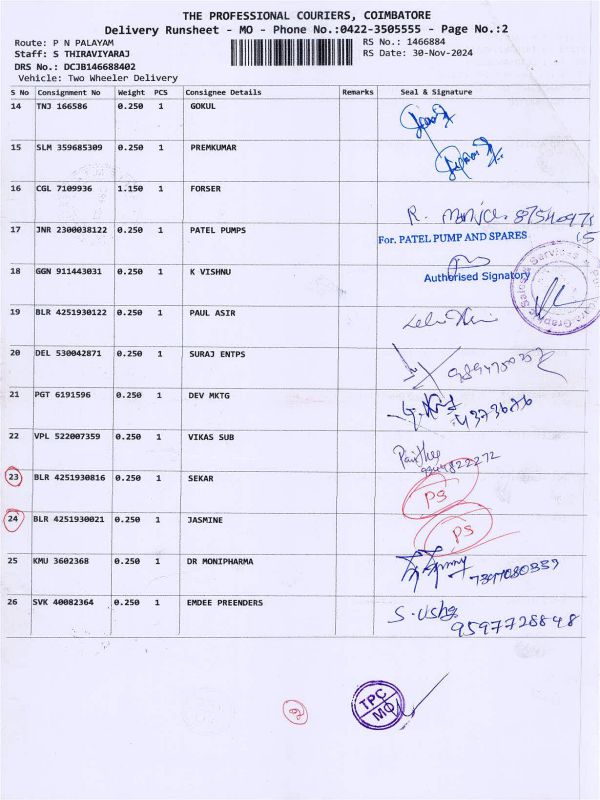 THE PROFESSIONAL COURIERS, COIMBATORE
Delivery Runsheet - MO - Phone No.:0422-3505555 - Page No.:2
Route: P N PALAYAM RS No.: 1466884
Staff: S THIRAVIYARAJ RS Date: 30-Nov-2024
DRS No.: DCJB146688402
Vehicle: Two Wheeler Delivery
S No Consignment No Weight PCS Consignee Details Remarks Seal & Signature
14 TNJ 166586 0.250 1 GOKUL
15 SLM 359685309 0.250 1 PREMKUMAR
16 CGL 7109936 1.150 1 FORSER
R.
17 JNR 2300038122 0.250 1 PATEL PUMPS
For. PATEL PUMP AND SPARES
Authorised Signatory
18 GGN 911443031 0.250 1 K VISHNU
19 BLR 4251930122 0.250 1 PAUL ASIR
20 DEL 530042871 0.250 1 SURAJ ENTPS
21 PGT 6191596 0.250 1 DEV MKTG
22 VPL 522007359 0.250 1 VIKAS SUB
23 BLR 4251930816 0.250 1 SEKAR PS
24 BLR 4251930021 0.250 1 JASMINE PS
25 KMU 3602368 0.250 1 DR MONIPHARMA
26 SVK 40082364 0.250 1 EMDEE PREENDERS S. Usha
9597728848
TPC
MO